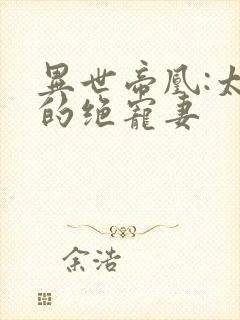 異世帝凰:太
的绝寵妻
余浩